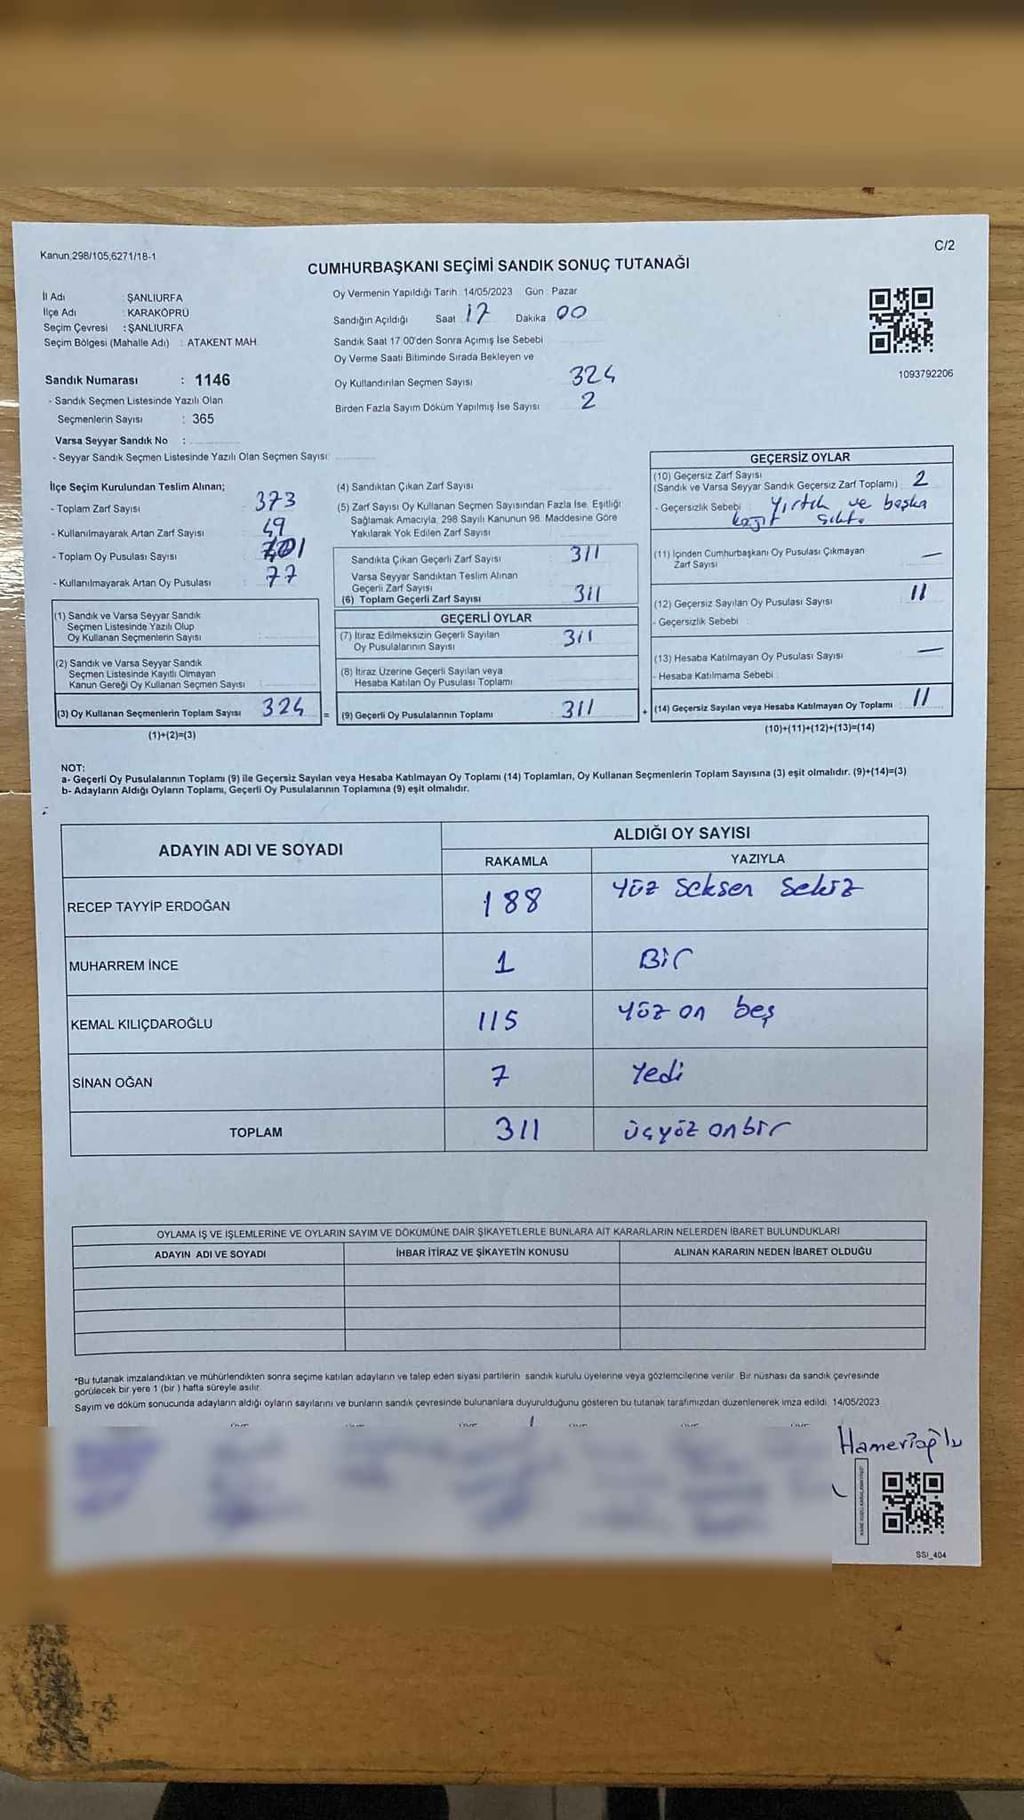 Kanun,298/105,6271/18-1
C/2
CUMHURBAŞKANI SEÇİMİ SANDIK SONUÇ TUTANAĞI
İl Adı : ŞANLIURFA
İlçe Adı : KARAKÖPRÜ
Seçim Çevresi : ŞANLIURFA
Seçim Bölgesi (Mahalle Adı) : ATAKENT MAH.
Sandık Numarası : 1146
- Sandık Seçmen Listesinde Yazılı Olan
Seçmenlerin Sayısı : 365
Varsa Seyyar Sandık No :
- Seyyar Sandık Seçmen Listesinde Yazılı Olan Seçmen Sayısı:
Oy Vermenin Yapıldığı Tarih: 14/05/2023 Gün : Pazar
Sandığın Açıldığı Saat 17 Dakika 00
Sandık Saat 17:00'den Sonra Açımış İse Sebebi
Oy Verme Saati Bitiminde Sırada Bekleyen ve
Oy Kullandırılan Seçmen Sayısı 324
Birden Fazla Sayım Döküm Yapılmış İse Sayısı 2
1093792206
İlçe Seçim Kurulundan Teslim Alınan;
- Toplam Zarf Sayısı 373
- Kullanılmayarak Artan Zarf Sayısı 49
- Toplam Oy Pusulası Sayısı
- Kullanılmayarak Artan Oy Pusulası 77
(1) Sandık ve Varsa Seyyar Sandık
Seçmen Listesinde Yazılı Olup
Oy Kullanan Seçmenlerin Sayısı
(2) Sandık ve Varsa Seyyar Sandık
Seçmen Listesinde Kayıtlı Olmayan
Kanun Gereği Oy Kullanan Seçmen Sayısı
(3) Oy Kullanan Seçmenlerin Toplam Sayısı 324 =
(1)+(2)=(3)
(4) Sandıktan Çıkan Zarf Sayısı
(5) Zarf Sayısı Oy Kullanan Seçmen Sayısından Fazla İse, Eşitliği
Sağlamak Amacıyla, 298 Sayılı Kanunun 98. Maddesine Göre
Yakılarak Yok Edilen Zarf Sayısı
Sandıkta Çıkan Geçerli Zarf Sayısı 311
Varsa Seyyar Sandıktan Teslim Alınan
Geçerli Zarf Sayısı
(6) Toplam Geçerli Zarf Sayısı 311
GEÇERLİ OYLAR
(7) İtiraz Edilmeksizin Geçerli Sayılan
Oy Pusulalarının Sayısı 311
(8) İtiraz Üzerine Geçerli Sayılan veya
Hesaba Katılan Oy Pusulası Toplamı
(9) Geçerli Oy Pusulalarının Toplamı 311 +
GEÇERSİZ OYLAR
(10) Geçersiz Zarf Sayısı
(Sandık ve Varsa Seyyar Sandık Geçersiz Zarf Toplamı) 2
- Geçersizlik Sebebi : Yırtık ve başka
kağıt çıktı.
(11) İçinden Cumhurbaşkanı Oy Pusulası Çıkmayan
Zarf Sayısı —
(12) Geçersiz Sayılan Oy Pusulası Sayısı 11
- Geçersizlik Sebebi :
(13) Hesaba Katılmayan Oy Pusulası Sayısı —
- Hesaba Katılmama Sebebi :
(14) Geçersiz Sayılan veya Hesaba Katılmayan Oy Toplamı 11
(10)+(11)+(12)+(13)=(14)
NOT:
a- Geçerli Oy Pusulalarının Toplamı (9) ile Geçersiz Sayılan veya Hesaba Katılmayan Oy Toplamı (14) Toplamları, Oy Kullanan Seçmenlerin Toplam Sayısına (3) eşit olmalıdır. (9)+(14)=(3)
b- Adayların Aldığı Oyların Toplamı, Geçerli Oy Pusulalarının Toplamına (9) eşit olmalıdır.
ADAYIN ADI VE SOYADI ALDIĞI OY SAYISI
RAKAMLA YAZIYLA
RECEP TAYYİP ERDOĞAN 188 Yüz Seksen Sekiz
MUHARREM İNCE 1 Bir
KEMAL KILIÇDAROĞLU 115 Yüz on beş
SİNAN OĞAN 7 Yedi
TOPLAM 311 üçyüz onbir
OYLAMA İŞ VE İŞLEMLERİNE VE OYLARIN SAYIM VE DÖKÜMÜNE DAİR ŞİKAYETLERLE BUNLARA AİT KARARLARIN NELERDEN İBARET BULUNDUKLARI
ADAYIN ADI VE SOYADI İHBAR İTİRAZ VE ŞİKAYETİN KONUSU ALINAN KARARIN NEDEN İBARET OLDUĞU
*Bu tutanak imzalandıktan ve mühürlendikten sonra seçime katılan adayların ve talep eden siyasi partilerin sandık kurulu üyelerine veya gözlemcilerine verilir. Bir nüshası da sandık çevresinde
görülecek bir yere 1 (bir ) hafta süreyle asılır.
Sayım ve döküm sonucunda adayların aldığı oyların sayılarını ve bunların sandık çevresinde bulunanlara duyurulduğunu gösteren bu tutanak tarafımızdan düzenlenerek imza edildi. 14/05/2023
SSI_404